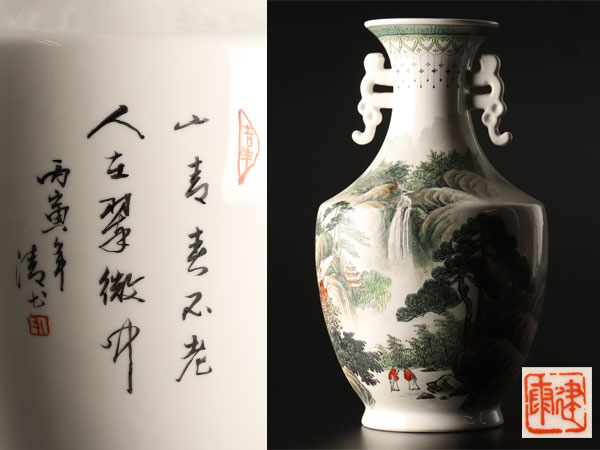 山青春不老
人在翠微中
丙寅年清书
建康